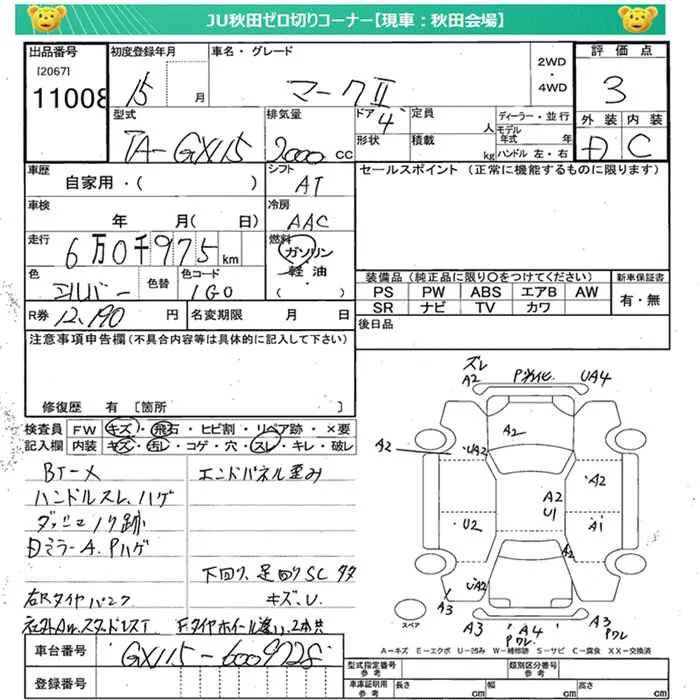 JU秋田ゼロ切りコーナー【現車：秋田会場】
出品番号
[2067]
11008
初度登録年月
15
月
車名・グレード
マークⅡ
2WD
・
4WD
評価点
3
外装 内装
D C
型式
TA-GX115
排気量
2000 cc
ドア 4
形状
定員
人
積載
kg
ディーラー・並行
モデル年式 年
ハンドル 左・右
車歴
自家用・( )
シフト
AT
セールスポイント (正常に機能するものに限ります)
車検
年 月( 日)
冷房
AAC
走行
6万0千975 km
燃料
ガソリン
軽油・
( )
色
シルバー
色替
色コード
1G0
装備品(純正品に限り○をつけてください)
PS PW ABS エアB AW
SR ナビ TV カワ
新車保証書
有・無
R券 12,190 円
名変期限 月 日
後日品
注意事項申告欄(不具合内容等は具体的に記入して下さい)
修復歴 有 [箇所 ]
検査員 FW キズ・飛石・ヒビ割・リペア跡・×要
記入欄 内装 キズ・汚レ・コゲ・穴・スレ・キレ・破レ
BT-メ
エンドパネル歪み
ハンドルスレ、ハゲ
ダッシュノリ跡
Dミラー A.Pハゲ
下回り、足回りSC サタ
キズ、U.
右Rタイヤパンク
社外Aw.スタッドレスT Fタイヤホイール違い、2本共
車台番号
GX115-6009728
登録番号
ズレ
A2
P劣化
UA4
A2
A2
UA2
A2
A2
U1
U2
A1
A2
UA2
A3
スペア
A3
A4
Pワレ
A3
Pワレ
A－キズ E－エクボ U－凹み W－補修跡 S－サビ C－腐食 XX－交換済
型式指定番号
参考
類別区分番号
参考
車庫証明用
参考
長さ cm
幅 cm
高さ cm